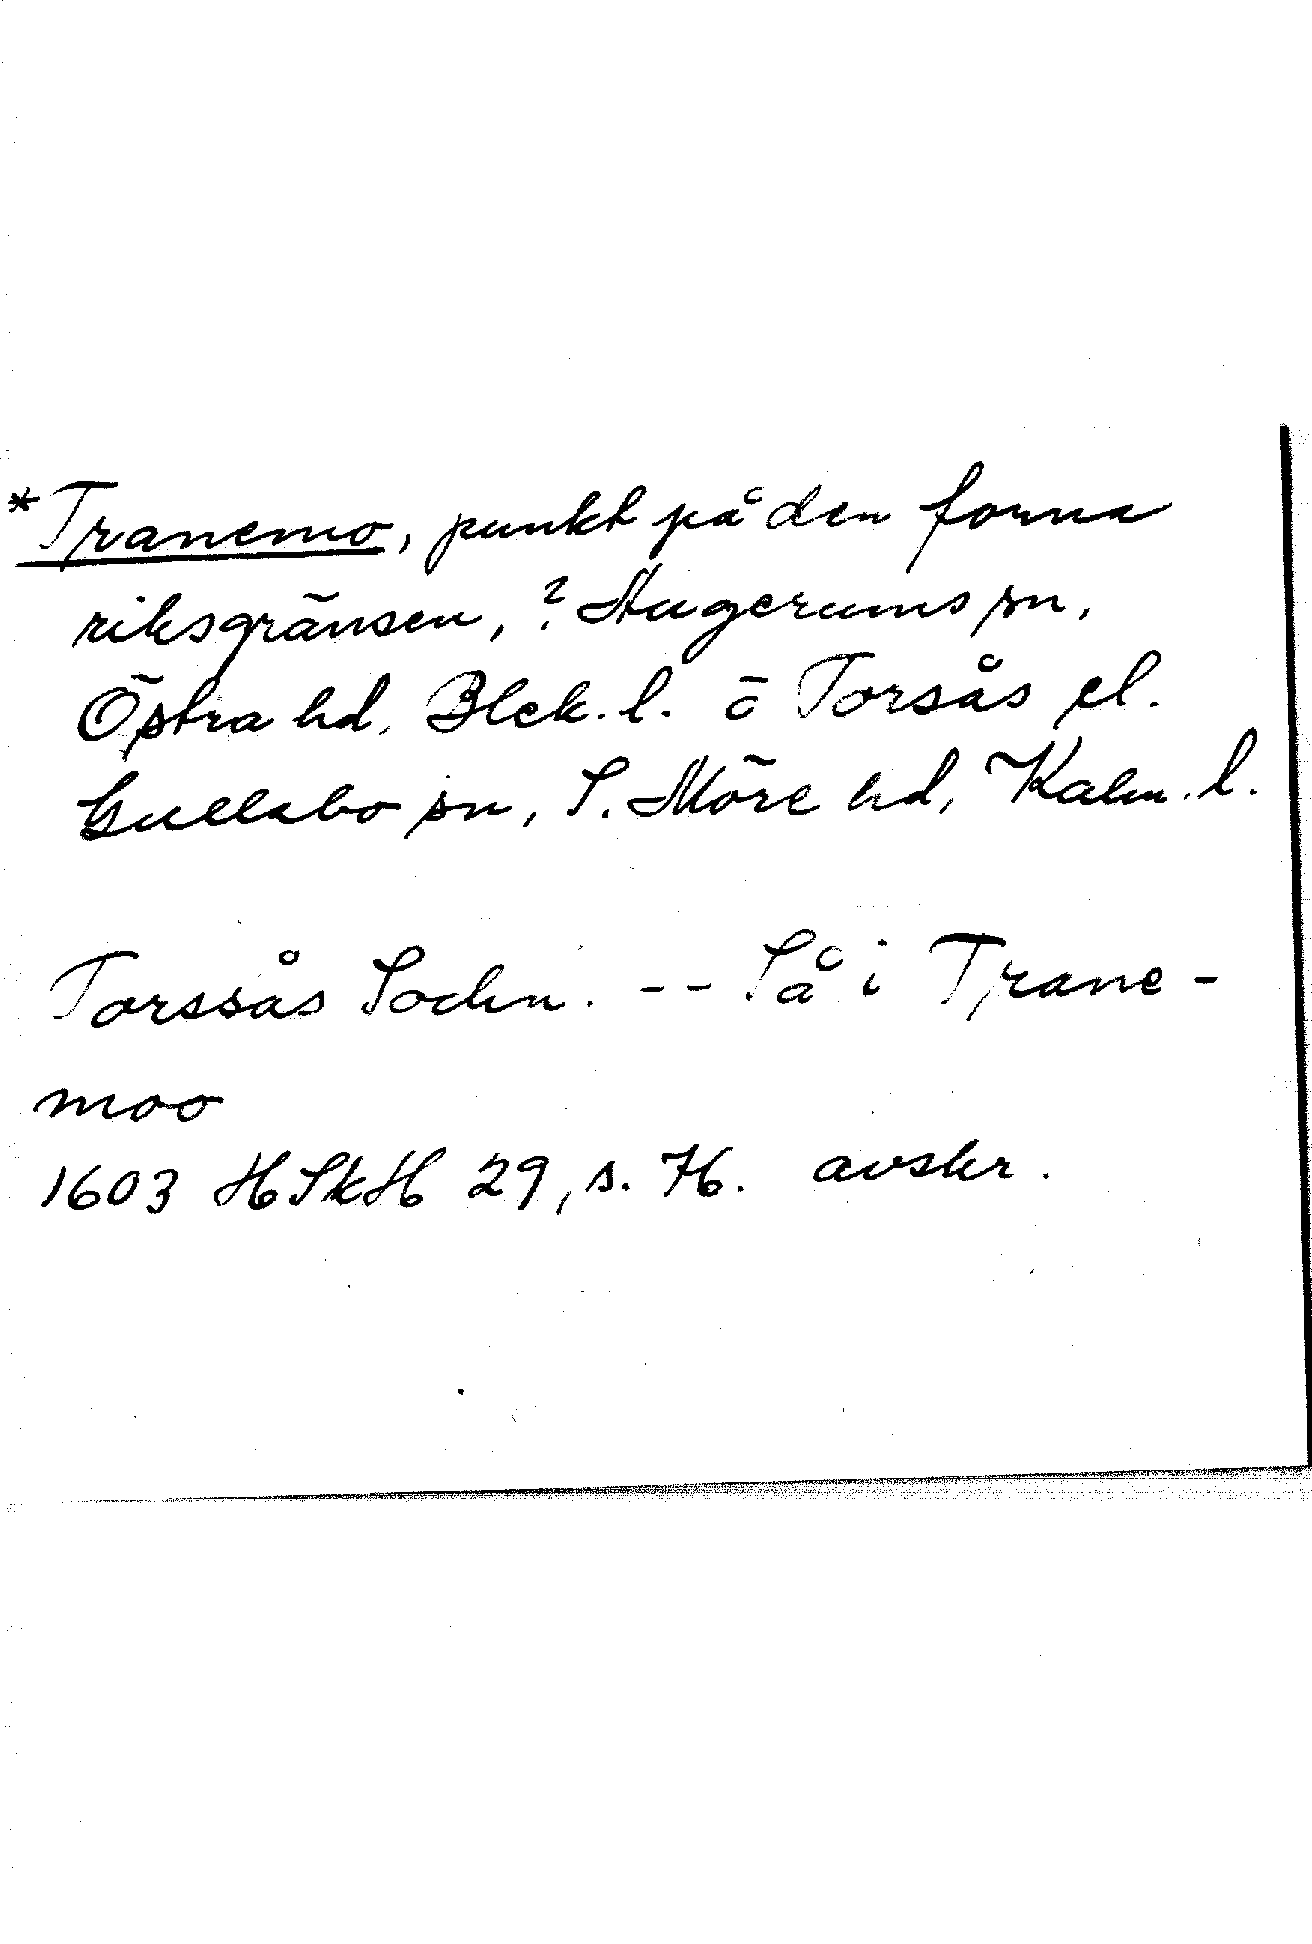 *Tranemo, punkt på den forna
riksgränsen, ? Hugerums sn,
Östra hd, Blek. l. o Torsås el.
Gullabo sn, S. Möre hd, Kalm. l.
Torssås Sochn. -- Så i Trane-
moo
1603 HSkH 29, s. 76. avskr.